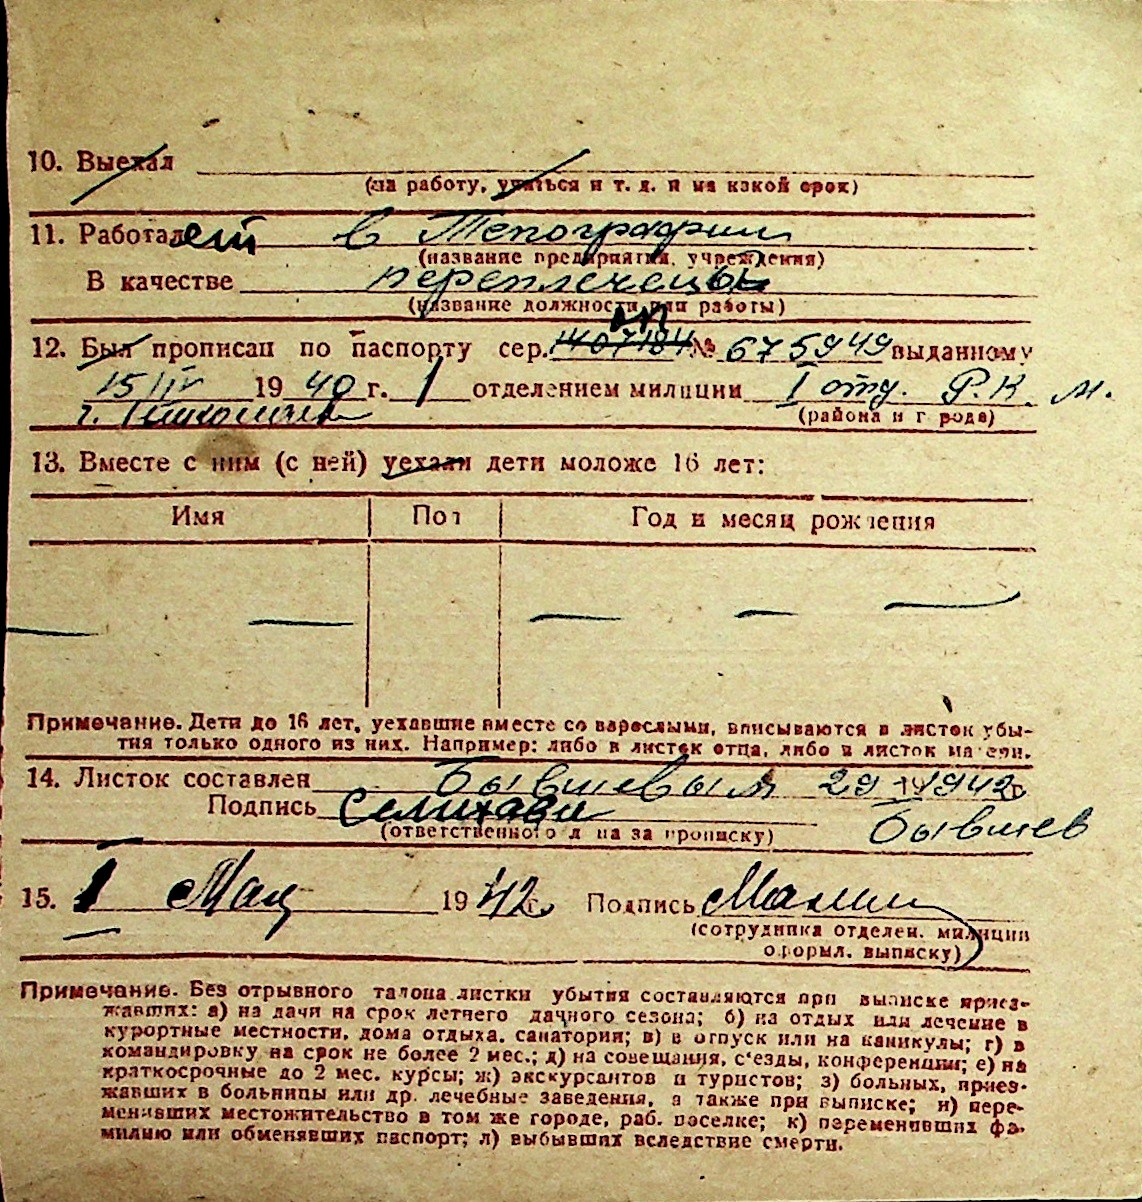 10. Выехал
(на работу, учиться и т. д. и на какой срок)
11. Работает в Типографии
(название предприятия, учреждения)
В качестве переплетецы
(название должности или работы)
12. Был прописан по паспорту сер. 1407184 № 675949 выданному
15/IV 1940 г. 1 отделением милиции I отд. Р.К.М.
г.
(района и города)
13. Вместе с ним (с ней) уехали дети моложе 16 лет:
Имя Пол Год и месяц рождения
Примечание. Дети до 16 лет, уехавшие вместе со взрослыми, вписываются в листок убы-
тия только одного из них. Например: либо в листок отца, либо в листок матери.
14. Листок составлен Бывшевым 29 IV 1942 г.
Подпись Бывшев
(ответственного лица за прописку)
15. 1 Мая 1942 г. Подпись
(сотрудника отделен. милиции
оформл. выписку)
Примечание. Без отрывного талона листки убытия составляются при выписке приез-
жавших: а) на дачи на срок летнего дачного сезона; б) на отдых или лечение в
курортные местности, дома отдыха, санатории; в) в отпуск или на каникулы; г) в
командировку на срок не более 2 мес.; д) на совещания, с'езды, конференции; е) на
краткосрочные до 2 мес. курсы; ж) экскурсантов и туристов; з) больных, приез-
жавших в больницы или др. лечебные заведения, а также при выписке; и) пере-
менивших местожительство в том же городе, раб. поселке; к) переменивших фа-
милию или обменявших паспорт; л) выбывших вследствие смерти.